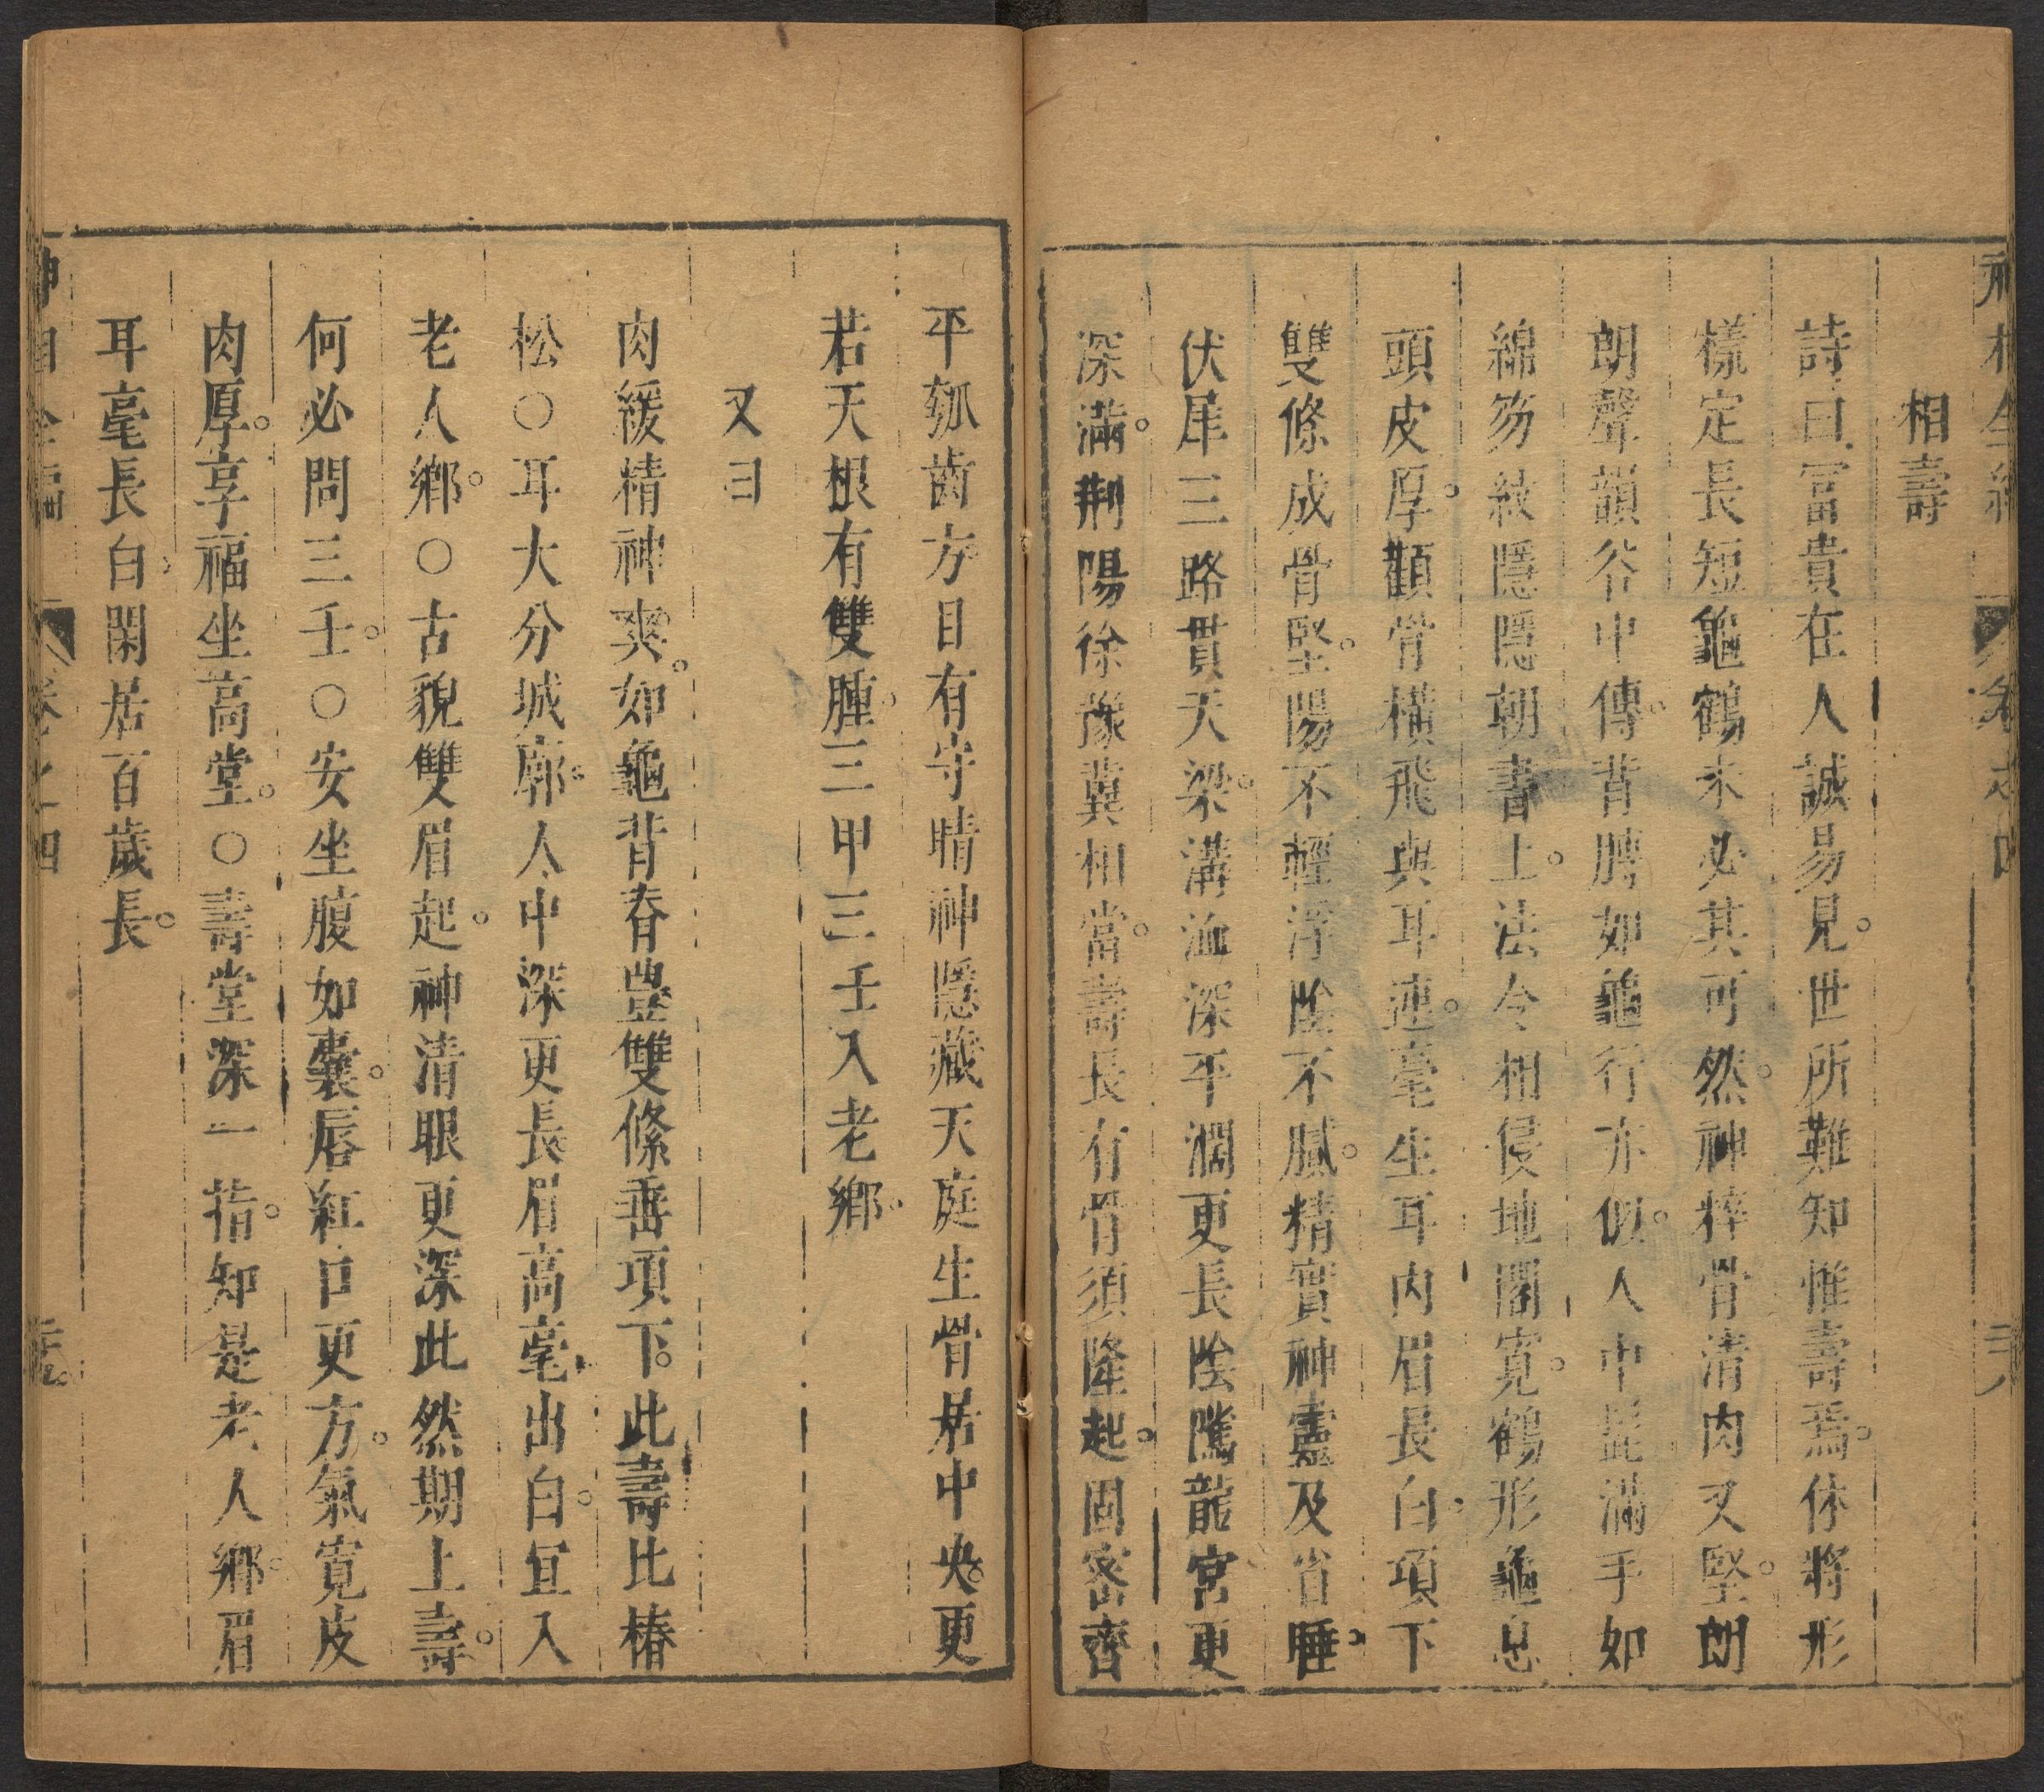 神相全編 卷之四 二八
相壽
詩曰富貴在人誠易見世所難知惟壽焉休將形
樣定長短龜鶴未必其可然神粹骨清肉又堅朗
朗聲韻谷中傳背膊如龜行亦似人中髭滿手如
綿笏紋隱隱朝書上法令相侵地閣寬鶴形龜息
頭皮厚顴骨橫飛與耳連毫生耳内眉長白項下
雙條成骨堅陽不輕浮陰不膩精實神靈及省睡
伏犀三路貫天梁溝洫深平濶更長陰隲龍宮更
深滿荆陽徐豫冀相當壽長有骨須隆起固密齊
平瓠齒方目有守睛神隱藏天庭生骨居中央更
若天根有雙腫三甲三壬入老鄉
又曰
肉緩精神爽如龜背脊豊雙絛垂項下此壽比椿
松○耳大分城廓人中深更長眉高毫出白宜入
老人鄉○古貌雙眉起神清眼更深此然期上壽
何必問三壬○安坐腹如囊唇紅口更方氣寬皮
肉厚享福坐高堂○壽堂深一指知是老人鄉眉
耳毫長白閑居百歲長
神相全編 卷之四